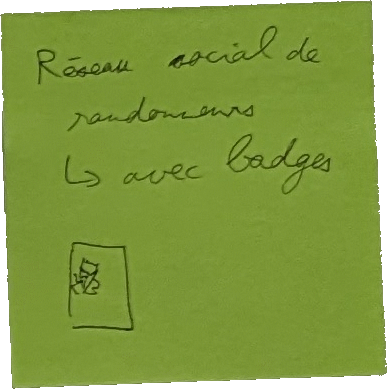 Réseau social de
randonneurs
↳ avec badges